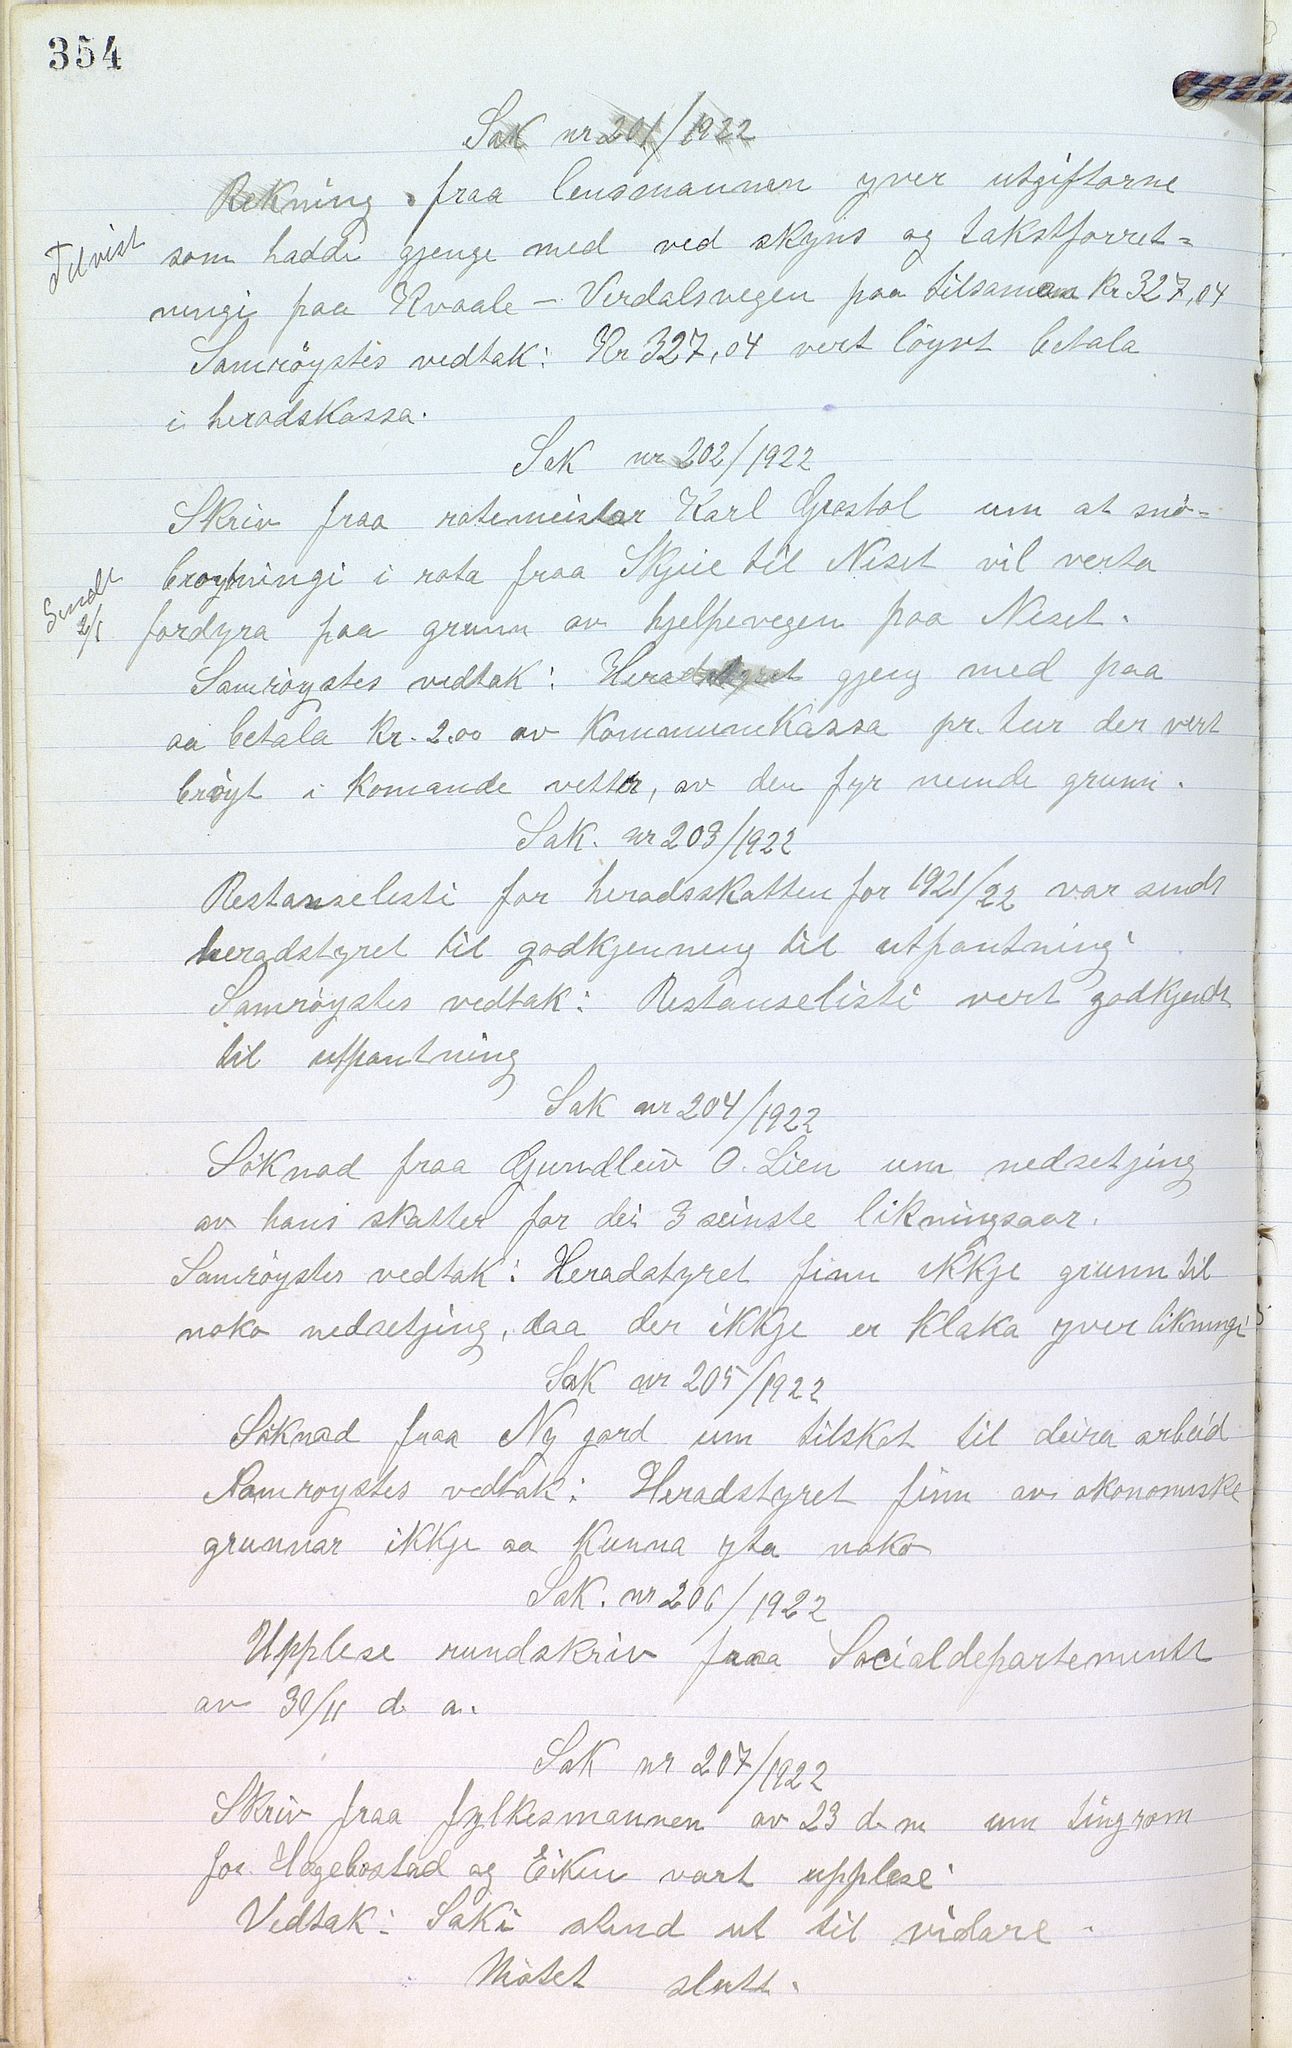 354
Sak nr 201/1922
Rekning fraa lensmannen yver utgiftarne
Tilvist
som hadde gjenge med ved skyns og takstforret-
ningi paa Kvaale - Virdalsvegen paa tilsaman Kr 327,04
Samrøystes vedtak: Kr 327,04 vert løyvt betala
i heradskassa.
Sak nr 202/1922
Skriv fraa rotemeistar Karl Grostøl um at snø-
brøytningi i rota fraa Skjeie til Neset vil verta
Sendt
2/1
fordyra paa grunn av hjelpevegen paa Neset.
Samrøystes vedtak: Heradstyret gjeng med paa
aa betala Kr. 2.00 av Kommunekassa pr. tur der vert
brøyt i komande vetter, av den fyr nemde grunn.
Sak. nr 203/1922
Restanselisti for heradsskatten for 1921/22 var sendt
heradstyret til godkjenning til utpantning
Samrøystes vedtak: Restanselisti vert godkjendt
til utpantning
Sak nr 204/1922
Søknad fraa Gundleiv O. Lien um nedsetjing
av hans skatter for dei 3 seinste likningsaar.
Samrøystes vedtak: Heradstyret finn ikkje grunn til
noko nedsetjing, daa der ikkje er klaka yver likningi
Sak nr 205/1922
Søknad fraa Ny jord um tilskot til deira arbeid
Samrøystes vedtak: Heradstyret finn av økonomiske
grunnar ikkje aa kunna yta noko
Sak. nr 206/1922
Upplese rundskriv fraa Socialdepartementet
av 30/11 d. a.
Sak nr 207/1922
Skriv fraa fylkesmannen av 23 d. m um tingrom
for Hægebostad og Eiken vart upplese
Vedtak: Saki stend ut til vidare.
Møtet slutt.